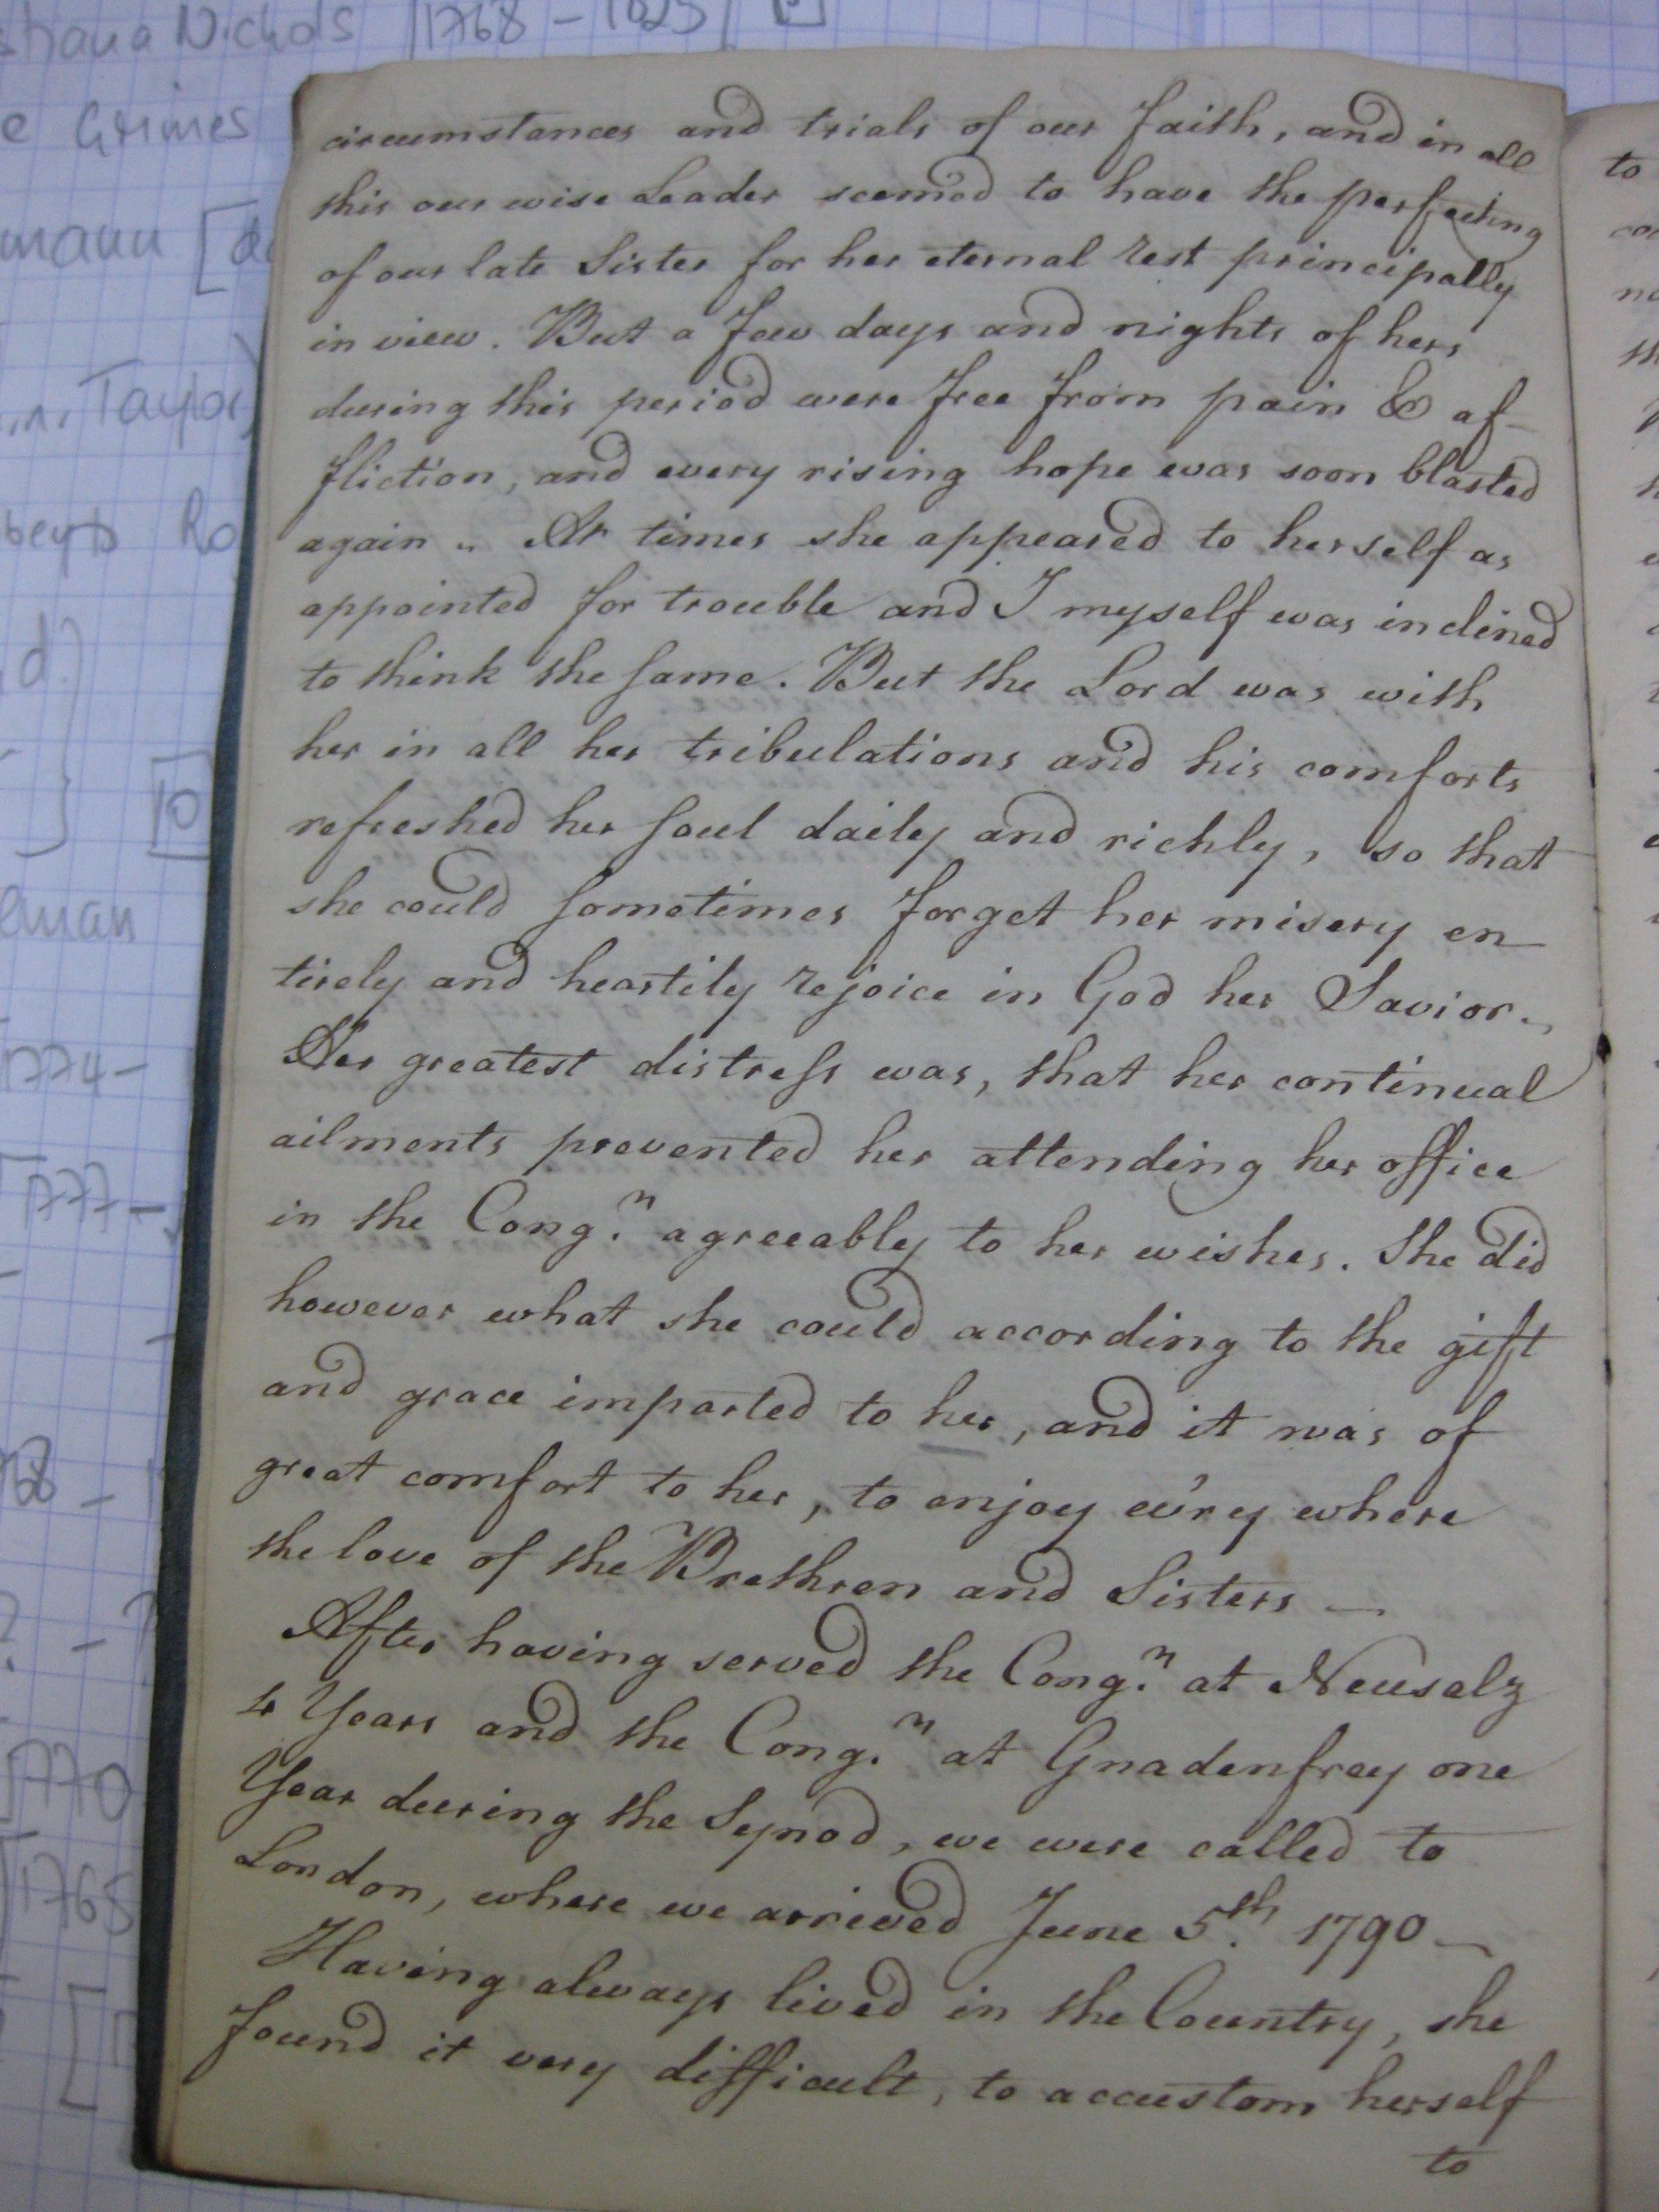 shana Nichols [1768 - 1825]
e Grimes
mann [
Taylor
beyts Ro
d.)
[10]
lman
1774-
1777-
768 -
? - ?
1770
1765
circumstances and trials of our faith, and in all
this our wise Leader seemed to have the perfecting
of our late Sister for her eternal rest principally
in view. But a few days and nights of hers
during this period were free from pain & af-
fliction, and every rising hope was soon blasted
again „ At times she appeared to herself as
appointed for trouble and I myself was inclined
to think the same. But the Lord was with
her in all her tribulations and his comforts
refreshed her soul daily and richly, so that
she could sometimes forget her misery en-
tirely and heartily rejoice in God her Savior.„
Her greatest distress was, that her continual
ailments prevented her attending her office
in the Cong.n agreeably to her wishes. She did
however what she could according to the gift
and grace imparted to her, and it was of
great comfort to her, to enjoy ev'ry where
the love of the Brethren and Sisters —
After having served the Cong.n at Neusalz
4 Years and the Cong.n at Gnadenfrey one
Year during the Synod, we were called to
London, where we arrived June 5.th 1790 —
Having always lived in the Country, she
found it very difficult, to accustom herself
to
to